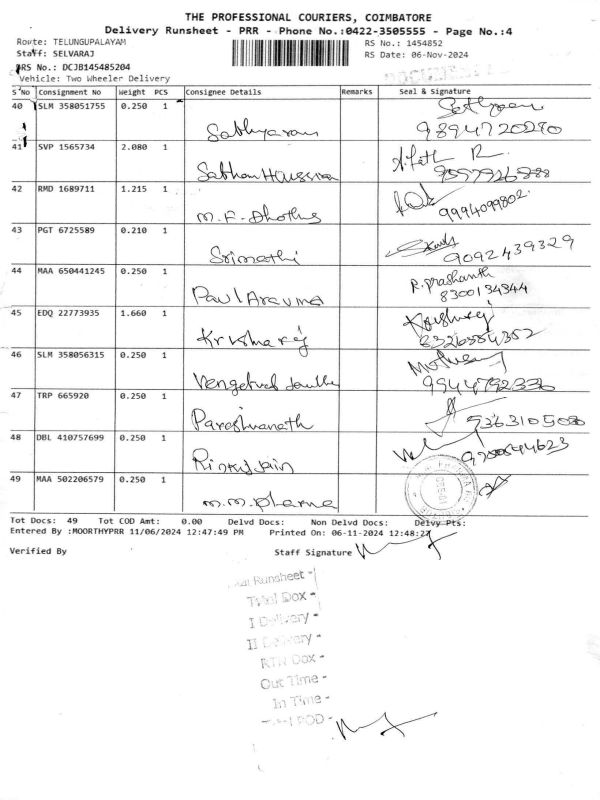 THE PROFESSIONAL COURIERS, COIMBATORE
Delivery Runsheet - PRR - Phone No.:0422-3505555 - Page No.:4
Route: TELUNGUPALAYAM
RS No.: 1454852
Staff: SELVARAJ
RS Date: 06-Nov-2024
PRS No.: DCJB145485204
DOCUMENT
Vehicle: Two Wheeler Delivery
S No Consignment No Weight PCS Consignee Details Remarks Seal & Signature
40 SLM 358051755 0.250 1 Sathyaram
9894720290
41 SVP 1565734 2.080 1
42 RMD 1689711 1.215 1 M.F.
9994099802
43 PGT 6725589 0.210 1 Srimathi
9092439329
44 MAA 650441245 0.250 1 R. Prashanth
8300134344
45 EDQ 22773935 1.660 1 Krishnaraj
46 SLM 358056315 0.250 1
47 TRP 665920 0.250 1
48 DBL 410757699 0.250 1
49 MAA 502206579 0.250 1 M.M.
Tot Docs: 49 Tot COD Amt: 0.00 Delvd Docs: Non Delvd Docs: Delvy Pts:
Entered By :MOORTHYPRR 11/06/2024 12:47:49 PM Printed On: 06-11-2024 12:48:27
Verified By Staff Signature
Runsheet -
Total Dox -
I Delivery -
II Delivery -
RTN Dox -
Out Time -
In Time -
POD -